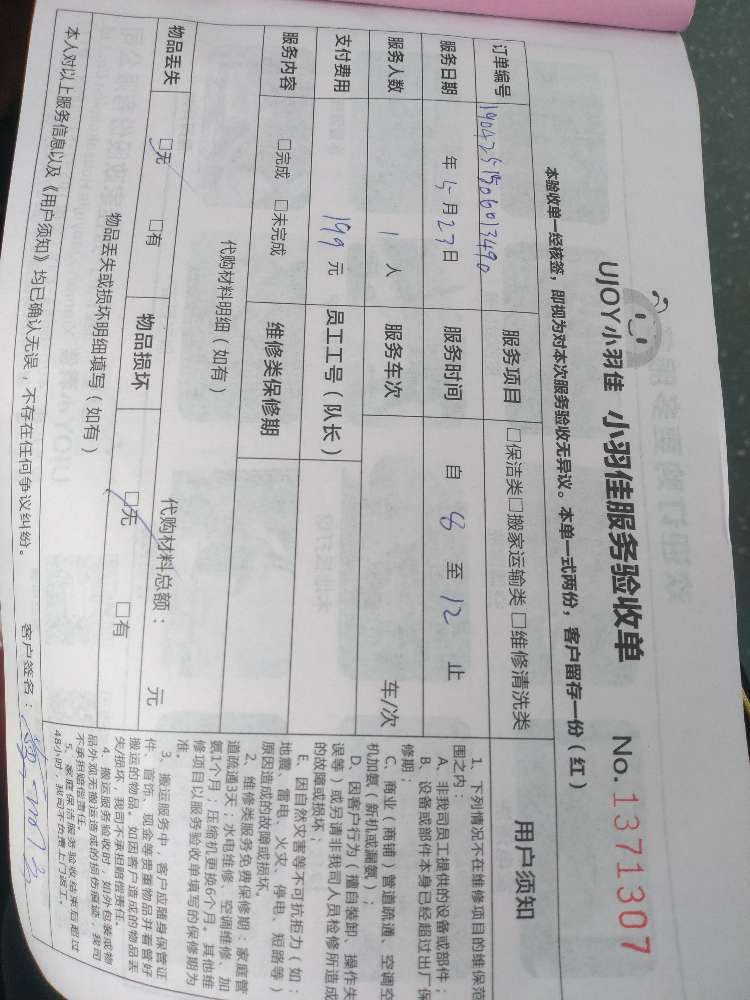 UJOY小羽佳 小羽佳服务验收单 No.1371307
本验收单一经核签，即视为对本次服务验收无异议。本单一式两份，客户留存一份（红）
订单编号 1904251506013490 服务项目 □保洁类□搬家运输类 □维修清洗类
服务日期 年5月23日 服务时间 自 8 至 12 止
服务人数 1 人 服务车次 车/次
支付费用 199 元 员工工号（队长）
服务内容 □完成 □未完成 维修类保修期
代购材料明细（如有） 代购材料总额： 元
物品丢失 □无 □有 物品损坏 □无 □有
物品丢失或损坏明细填写（如有）
本人对以上服务信息以及《用户须知》均已确认无误，不存在任何争议纠纷。 客户签名：
用户须知
1、下列情况不在维修项目的维保范
围之内：
A、非我司员工提供的设备或部件；
B、设备或部件本身已经超过出厂保
修期；
C、商业（商铺）管道疏通、空调空
机加氨（新机或漏氨）；
D、因客户行为（擅自装卸、操作失
误等）或另请非我司人员检修所造成
的故障或损坏；
E、因自然灾害等不可抗拒力（如：
地震、雷电、火灾、停电、短路等）
原因造成的故障或损坏。
2、维修类服务免费保修期：家庭管
道疏通3天；水电维修、空调维修、加
氨1个月；压缩机更换6个月。其他维
修项目以服务验收单填写的保修期为
准
3、搬运服务中，客户应随身保管证
件、首饰、现金等贵重物品并看管好
搬运的物品。如因客户造成的物品丢
失/损坏，我司不承担赔偿责任。
4、搬运服务验收时，如外包装或物
品外观无搬运造成的损伤痕迹，我司
不承担赔偿责任。
5、家庭保洁服务验收结束后超过
48小时，我司不负责上门返工。